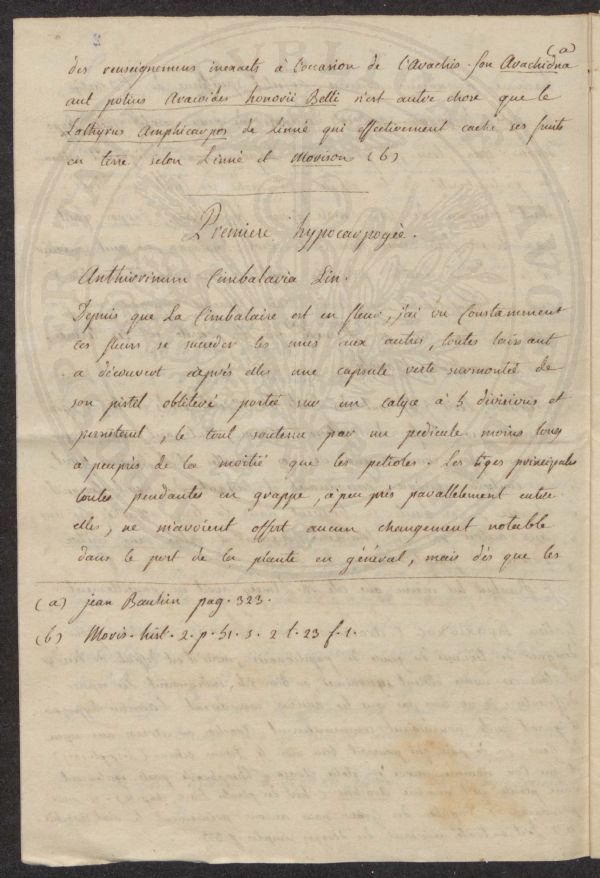 (a)
des renseignemens inexacts à l'occasion de l'Arachis. son Arachidna
aut potius Aracoides honorii Belli n'est autre chose que le
Lathyrus amphicarpos de Linné qui effectivement cache ses fruits
en terre selon Linné et Morison (b)
Premiere hypocarpogée.
Anthirrinum Cimbalaria Lin.
Depuis que La Cimbalaire est en fleur, j'ai vu Constamment
ces fleurs se succeder les unes aux autres, toutes laissant
a découvert après elles une capsule verte surmontée de
son pistil oblitéré portée sur un calyce à 5 divisions et
persistent, le tout soutenu par un pedicule moins long
à peuprès de la moitié que les petioles. Les tiges principales
toutes pendantes en grappe, à peu près parallelement entre
elles, ne m'avoient offert aucun changement notable
dans le port de la plante en général, mais dès que les
(a) jean Bauhin pag. 323.
(b) Moris. hist. 2. p. 51. s. 2 t. 23 f. 1.